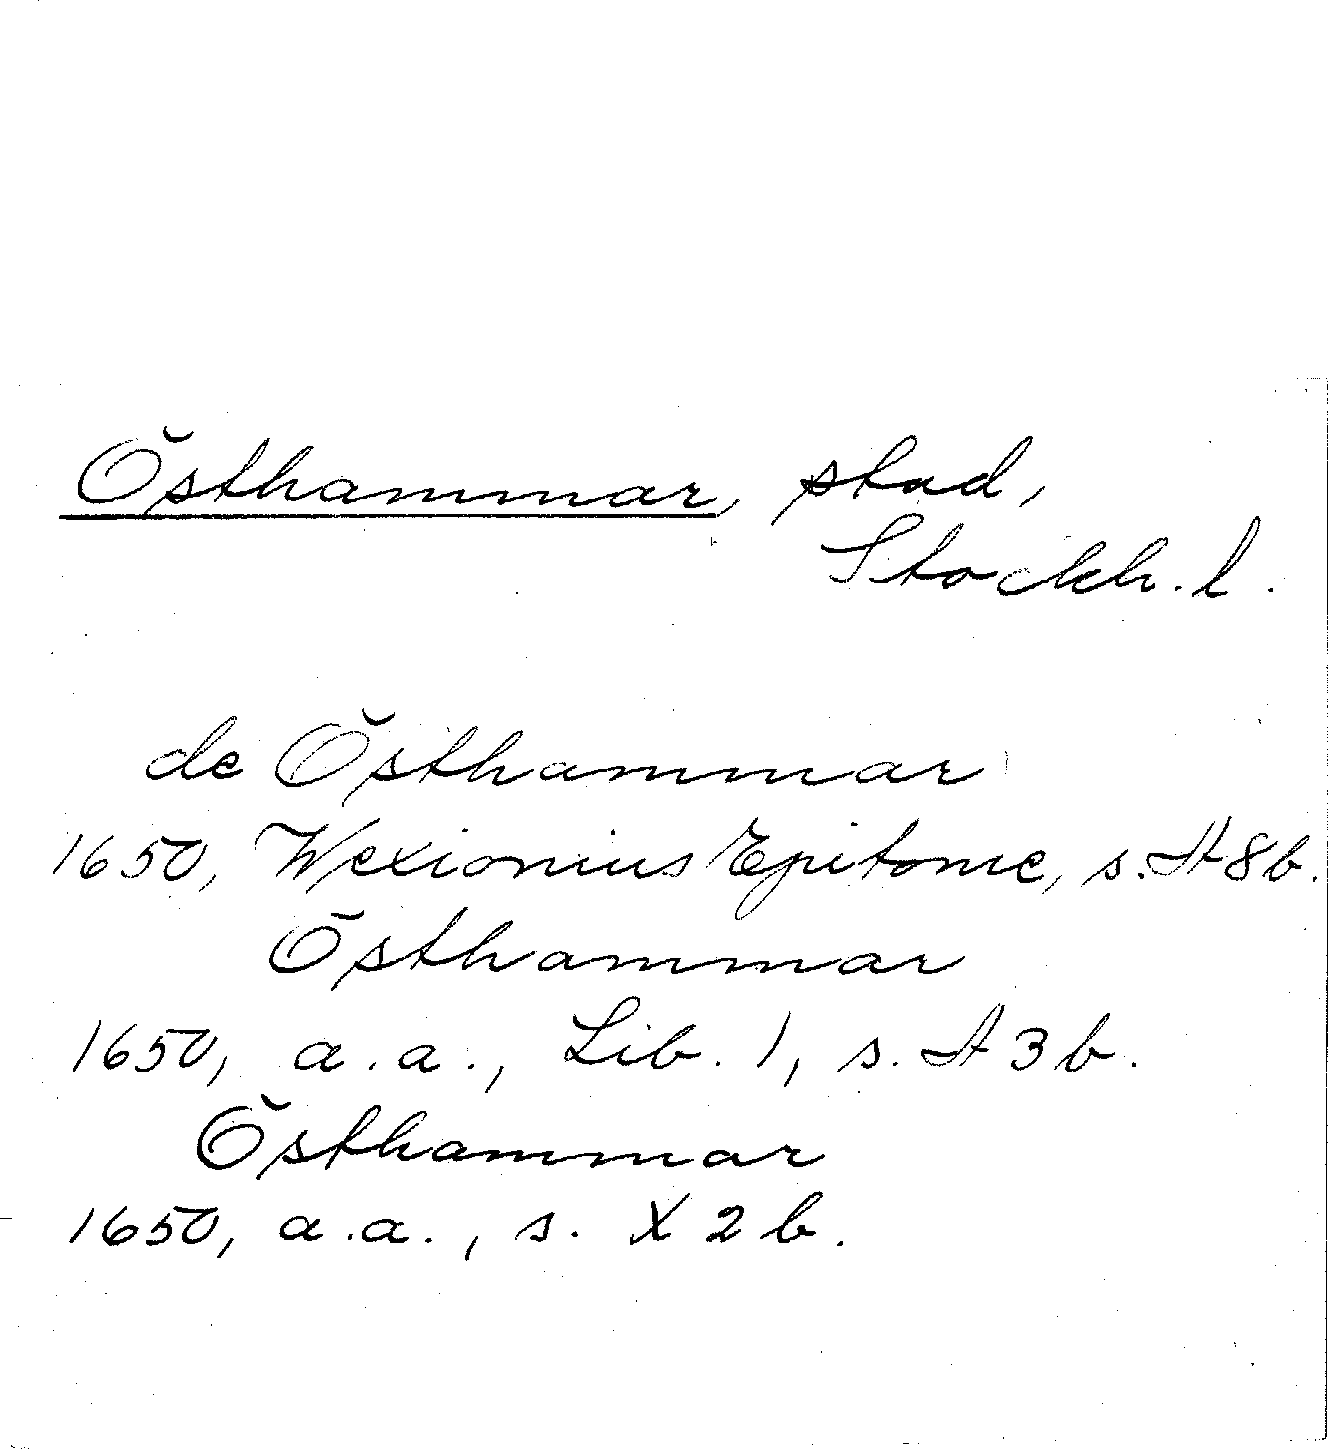 Östhammar, stad,
Stockh. l.
de Östhammar
1650, Wexionius Epitome, s. A8b.
Östhammar
1650, a.a., Lib. 1, s. A3b.
Östhammar
1650, a.a., s. X2b.